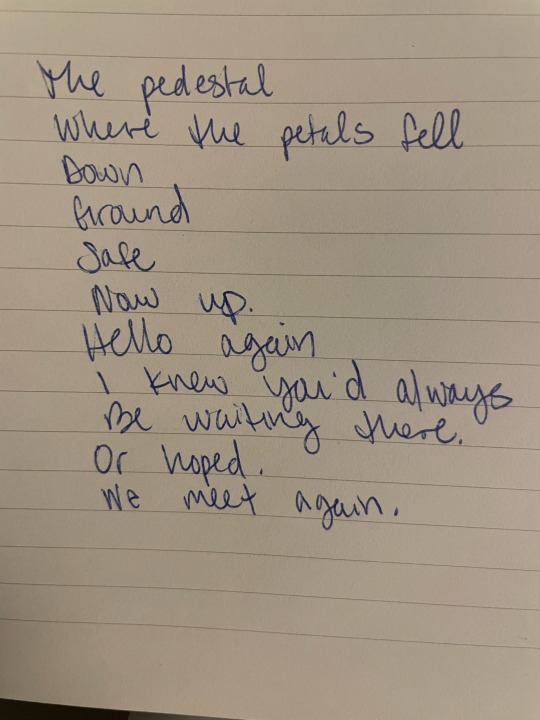 The pedestal
Where the petals fell
Down
Ground
Safe
Now up.
Hello again
I knew you'd always
Be waiting there.
Or hoped.
We meet again.